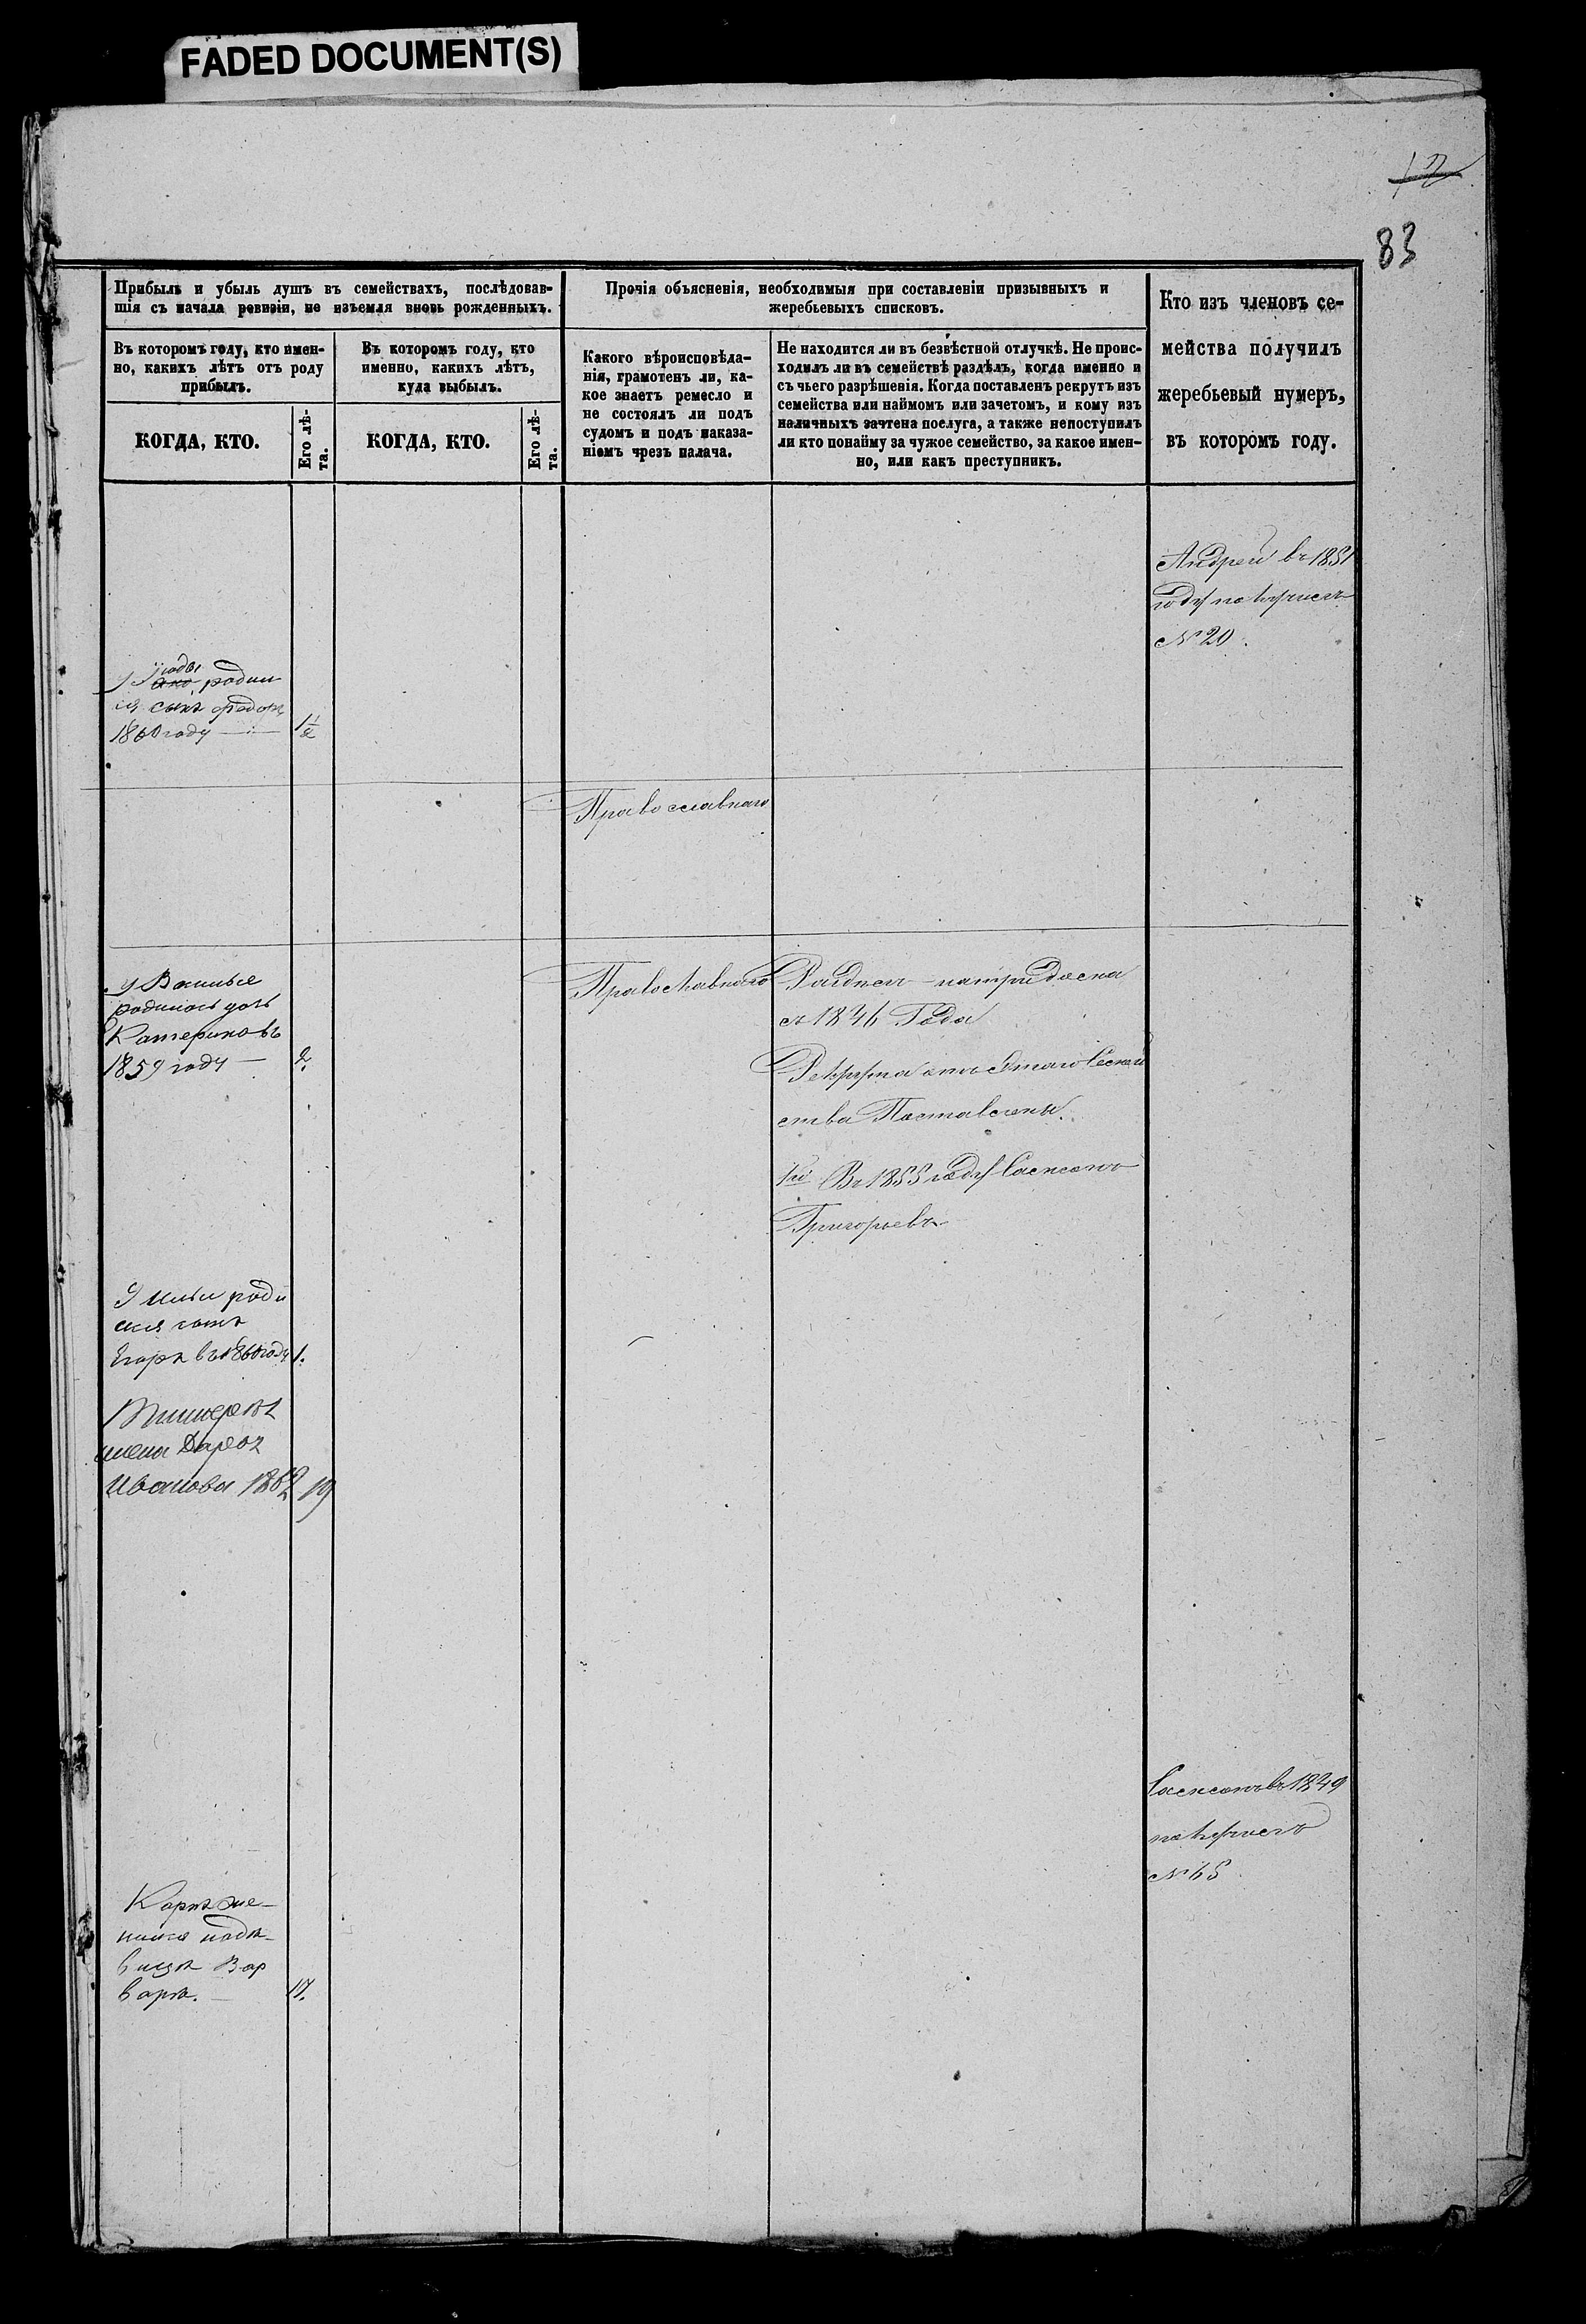 FADED DOCUMENT(S)
83
Прибыль и убыль душъ въ семействахъ, послѣдовав-
шія съ начала ревизіи, не изъемля вновь рожденныхъ.
Прочія объясненія, необходимыя при составленіи призывныхъ и
жеребьевыхъ списковъ.
Кто изъ членовъ се-
мейства получилъ
жеребьевый нумеръ,
въ которомъ году.
Въ которомъ году, кто имен-
но, какихъ лѣтъ отъ роду
прибылъ.
Въ которомъ году, кто
именно, какихъ лѣтъ,
куда выбылъ.
Какого вѣроисповѣда-
нія, грамотенъ ли, ка-
кое знаетъ ремесло и
не состоялъ ли подъ
судомъ и подъ наказа-
ніемъ чрезъ палача.
Не находится ли въ безвѣстной отлучкѣ. Не проис-
ходилъ ли въ семействѣ раздѣлъ, когда именно и
съ чьего разрѣшенія. Когда поставленъ рекрутъ изъ
семейства или наймомъ или зачетомъ, и кому изъ
наличныхъ зачтена послуга, а также непоступилъ
ли кто понайму за чужое семейство, за какое имен-
но, или какъ преступникъ.
КОГДА, КТО.
Его лѣ-
та.
КОГДА, КТО.
Его лѣ-
та.
Андрей въ 1851
году получилъ
№ 20.
родил
ся сынъ Федоръ
1860 году 1½
Православнаго
У Василье
родилась дочь
Катерина въ
1859 году — 2.
Православнаго
съ 1846 Года
Рекрута
ства Поставлены.
1й Въ 1855 году Самсонъ
Григорьевъ
У Ильи роди
лся сынъ
Егоръ въ 1860 году 1.
Дарья
Иванова 1862 19
Самсонъ въ 1849
получилъ
№ 65
Карпъ же-
нился
Вар
варѣ. — 17.